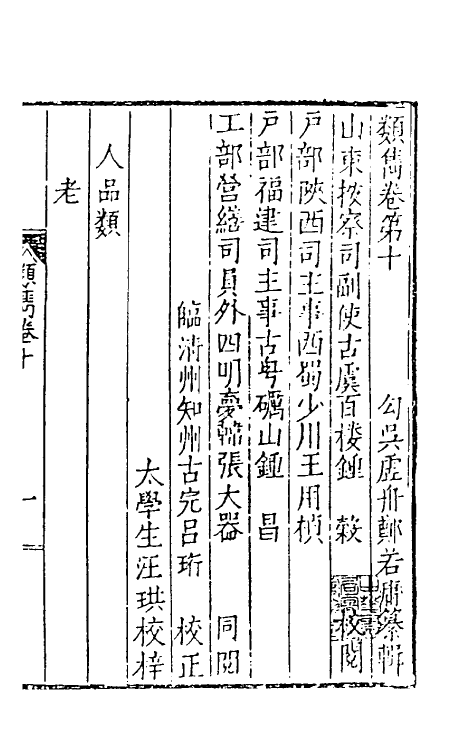 類雋卷第十　　勾吳虛舟鄭若庸纂輯
山東按察司副使古虞百樓鍾　糓　校閱
戶部陝西司主事西蜀少川王用楨
戶部福建司主事古粵礪山鍾　昌
工部營繕司員外四明臺麓張大器　同閱
臨清州知州古完呂珩　校正
太學生汪珙校梓
人品類
老
類雋卷十
一